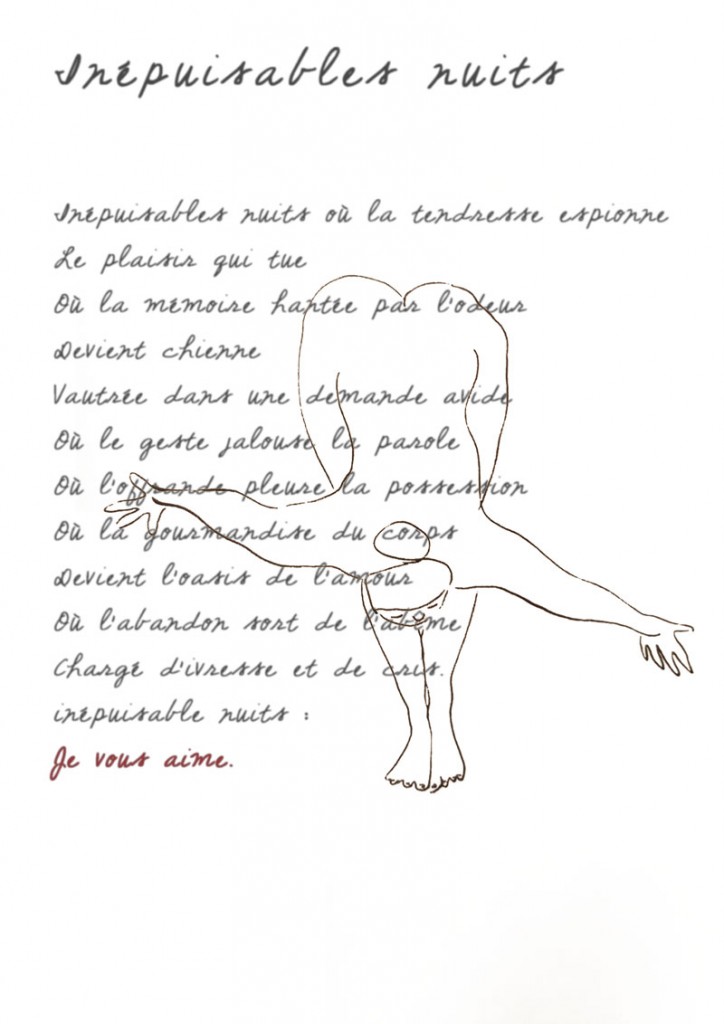 Inépuisables nuits
Inépuisables nuits où la tendresse espionne
Le plaisir qui tue
Où la mémoire hantée par l'odeur
Devient chienne
Vautrée dans une demande avide
Où le geste jalouse la parole
Où l'offrande pleure la possession
Où la gourmandise du corps
Devient l'oasis de l'amour
Où l'abandon sort de l'abîme
Chargé d'ivresse et de cris.
inépuisable nuits :
Je vous aime.